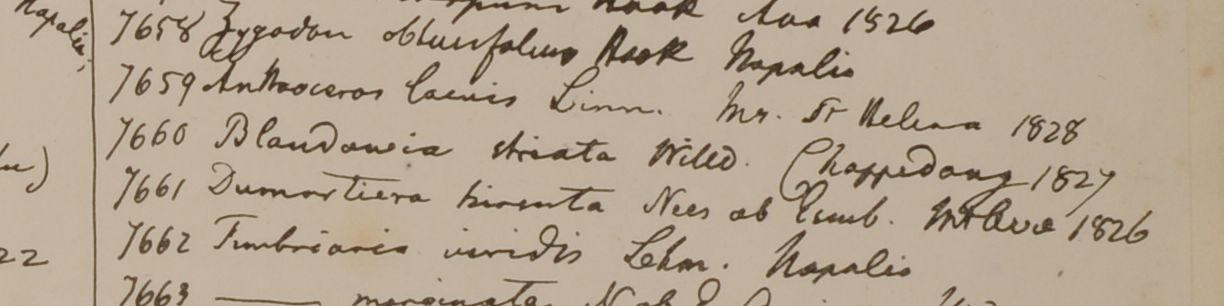 Napalia,
Hook Ava 1826
7658 Zygodon obtusifolius Hook Napalia
7659 Anthoceros laevis Linn. Ins. St Helena 1828
7660 Blandowia striata Willd. Chappedong 1827
7661 Dumortiera hirsuta Nees ab Esenb. Mt Ava 1826
7662 Fimbriaria viridis Lehm. Napalia
22
7663 —— marginata N ab E